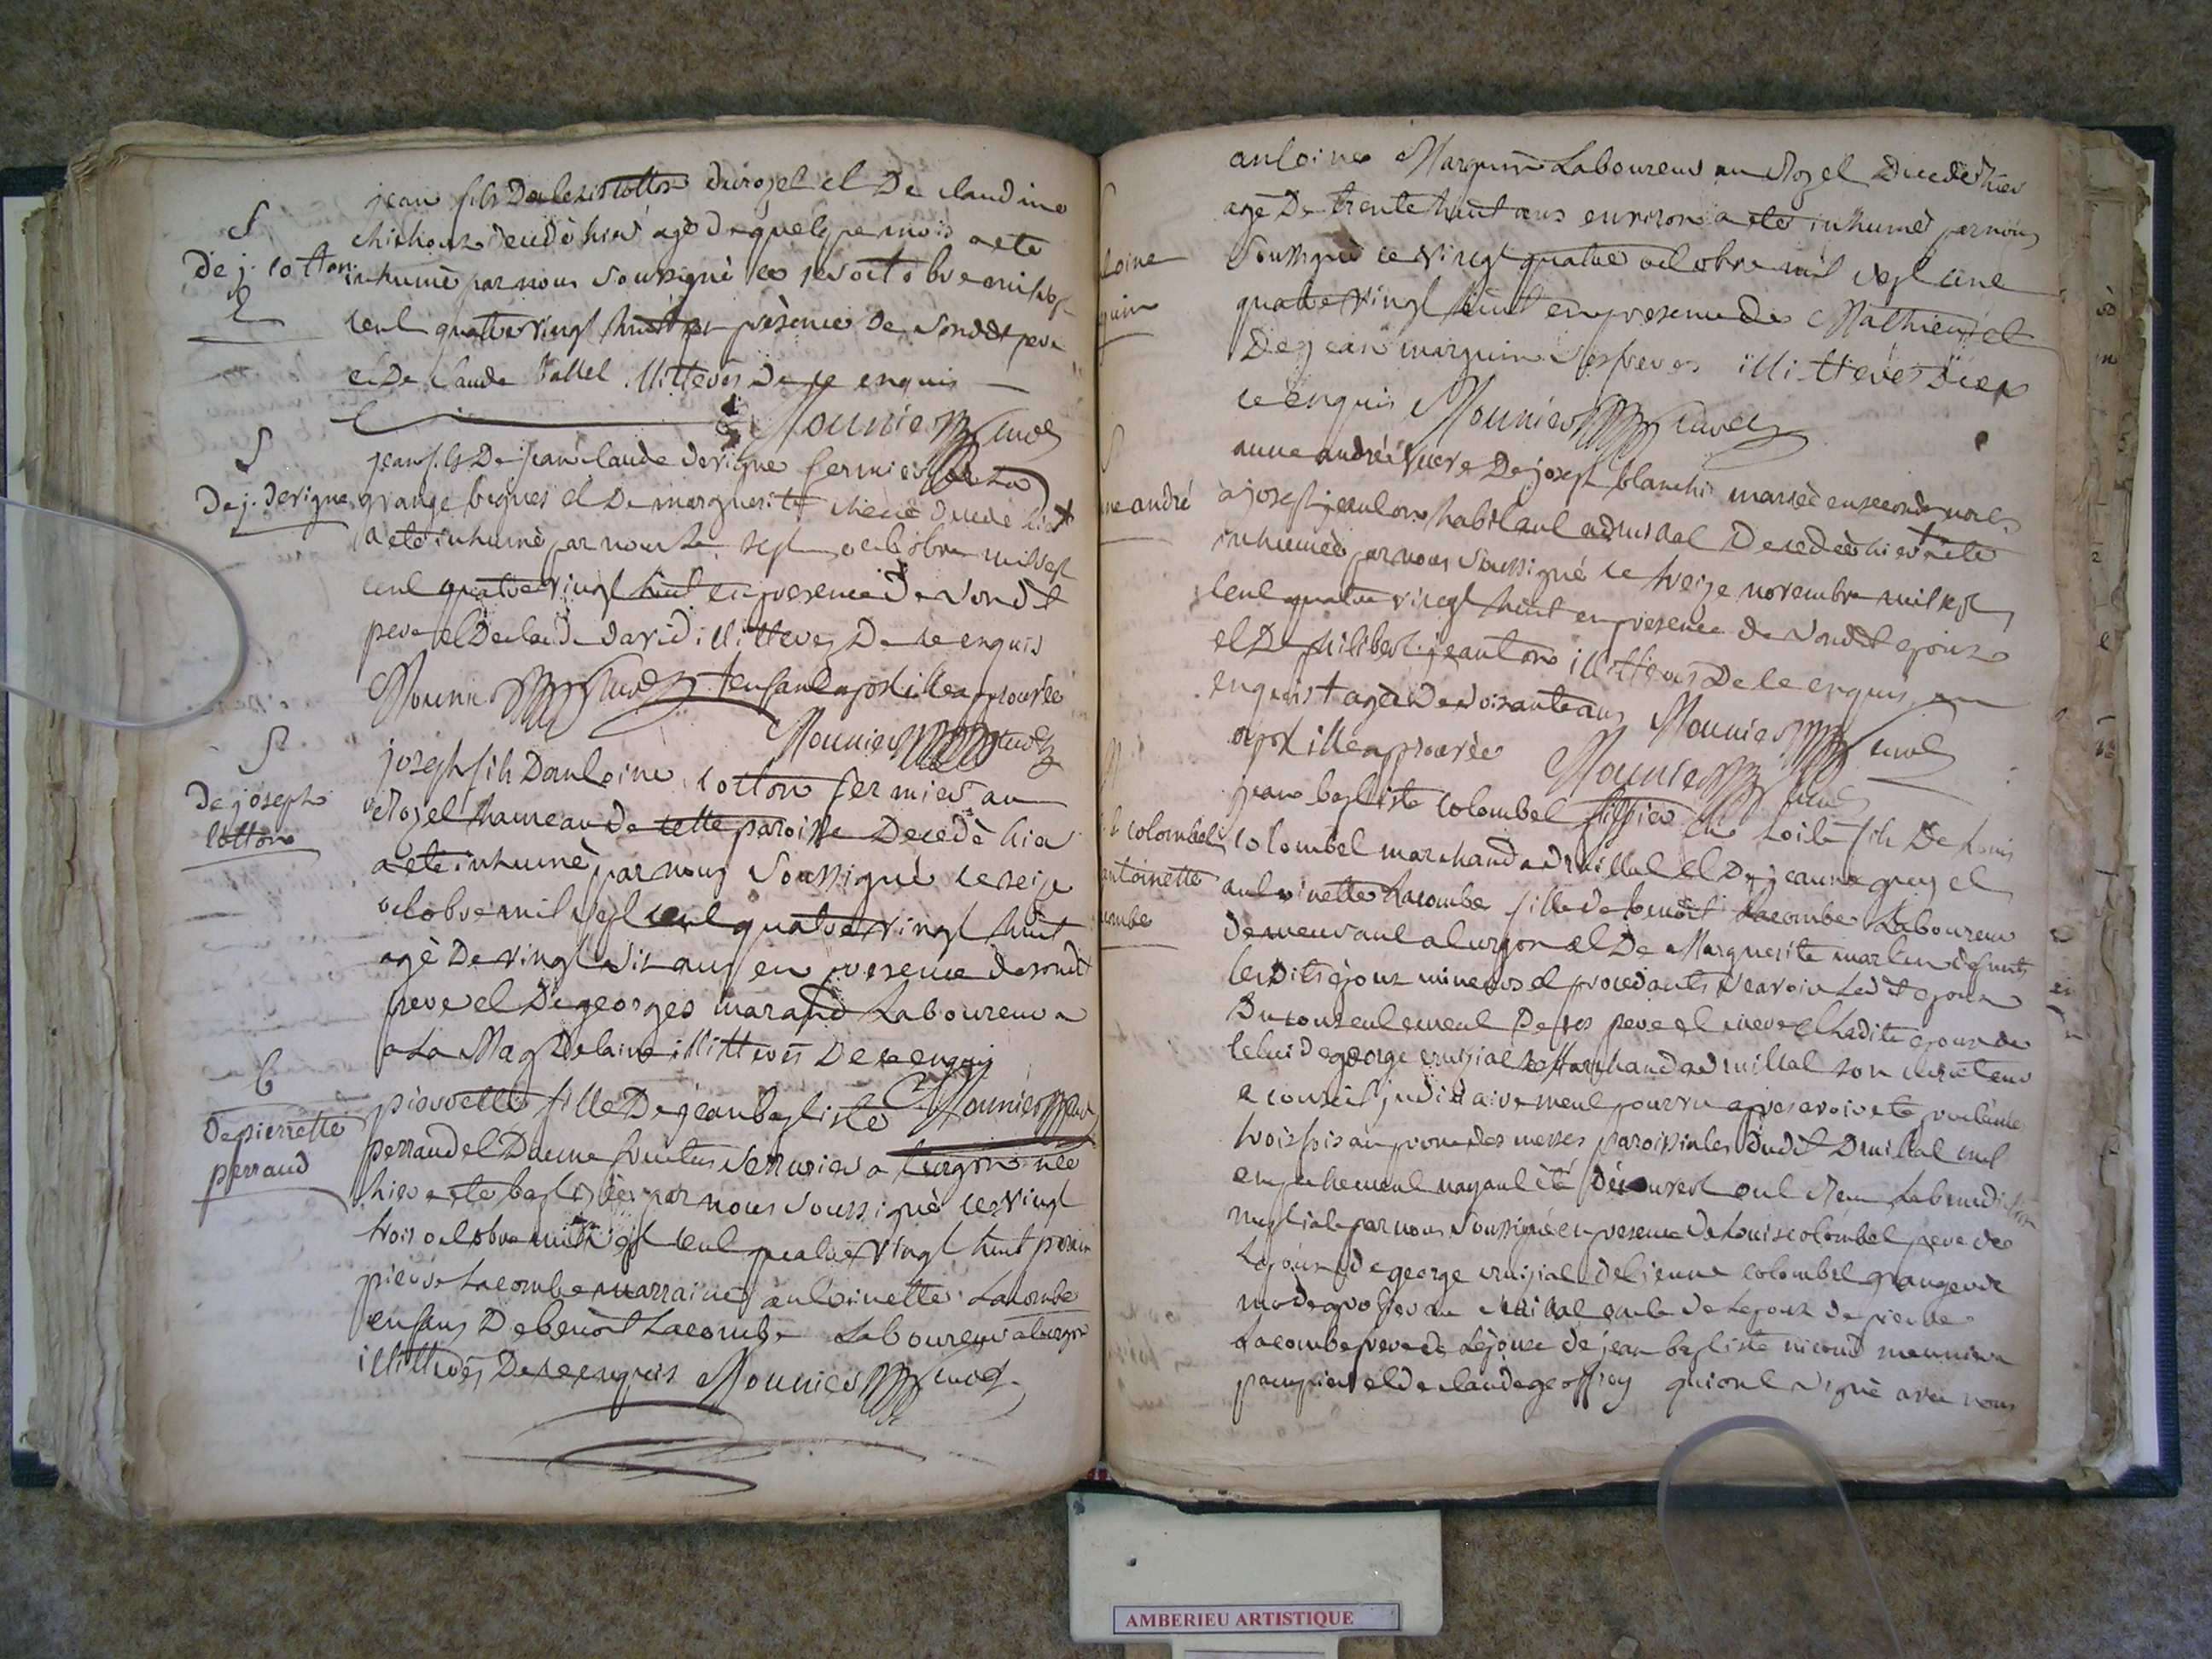 S
De j. cotton
jean fils Dalexis cotton durozel et De claudine
decedé hier agé de quelque mois a ete
inhumé par nous soussigné le octobre mil sept
cent quatre vingt huit en présence De sondt pere
et De Claude illitteres De ce enquis
Mounier curé
S
De j. derigne
jean fils De jean claude derigne fermier
grange begues et De marguerite decede hier +
a ete inhumé par nous le sept octobre mil sept
cent quatre vingt huit en presence De sondt
pere et De claude david illitteres De ce enquis
Mounier curé + enfant apostille approuvée
Mounier curé
S
De joseph
cotton
joseph fils Dantoine cotton fermier au
rozel hameau de cette paroisse Decedé hier
a ete inhumé par nous soussigné le seize
octobre mil sept cent quatre vingt huit
agé De vingt six ans en presence de sondt
pere et De georges marand Laboureur a
a La Magdelaine illitteres De ce enquis
Mounier curé
b
De pierrette
perraud
pierrette fille De jean baptiste
perraud et Danne serrurier a Lurgon née
hier a ete baptisée par nous soussigné le vingt
trois octobre mil sept cent quatre vingt huit parain
pierre Lacombe marraine antoinette Lacombe
enfans De benoit Lacombe Laboureur a Lurgon
illitteres De ce enquis Mounier curé
antoine Marguin Laboureur au rozel Decedé hier
agé De trente huit ans environ a eté inhumé par nous
soussigné ce vingt quatre octobre mil sept cent
quatre vingt huit en presence de Mathieu et
De jean marguin ses freres illitteres De
ce enquis Mounier curé
ne andré
anne andré veuve De joseph blanchi mariée en seconde noces
a joseph jeanton habitant a druillat Decedée hier + a ete
inhumée par nous soussigné le treize novembre mil sept
cent quatre vingt huit en presence de sondt epoux
et De philibert jeanton illitteres De ce enquis
enquis + agée De soixante ans Mounier curé
apostille approuvée Mounier curé
colombet
antoinette
ombe
jean baptiste colombet fils de Louis
colombet marchand a druillat et De jeanne et
antoinette Lacombe fille de benoit Lacombe Laboureur
demeurant a Lurgon et De Marguerite martin defunts
lesdits epoux mineurs et procedants scavoir Ledt epoux
Du consentement De ses pere et mere et Ladite epouse de
celui de george marchand a druillat son curateur
a conseil judiciairement pourvu apres avoir ete proclamés
trois fois au prone des messes paroissiales dudt Druillat nul
empechement nayant été découvert ont recu La benediction
nuptiale par nous soussigné en presence de Louis colombet pere de
Lepoux de george detienne colombet granger de
de Lepoux de pierre
Lacombe frere de Lepouse de jean baptiste nicoud meunier a
et de claude geoffray qui ont signé avec nous
AMBERIEU ARTISTIQUE